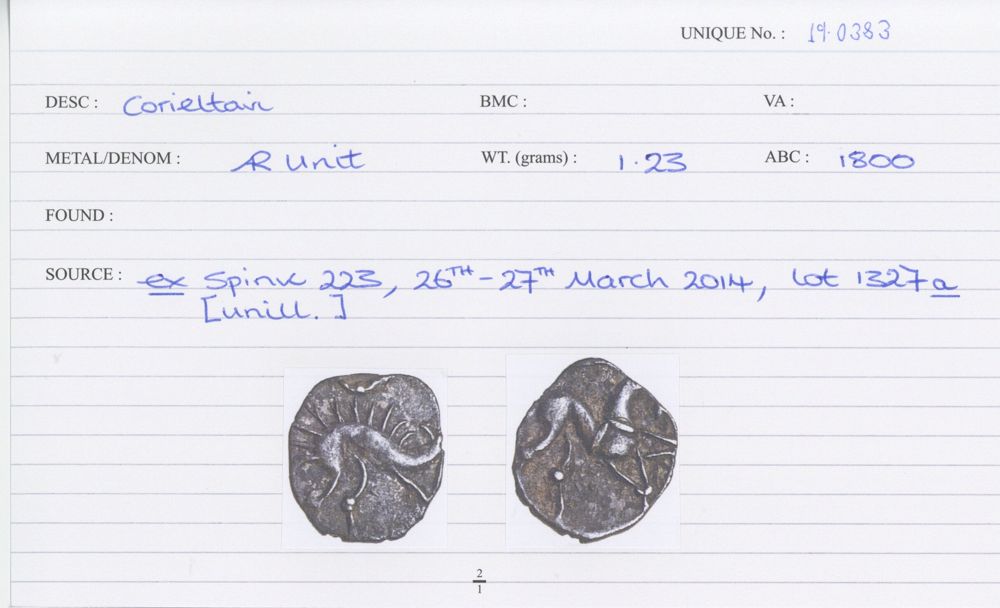 UNIQUE No. : 19.0383
DESC : Corieltavi BMC : VA :
METAL/DENOM : AR Unit WT. (grams) : 1.23 ABC : 1800
FOUND :
SOURCE : ex Spink 223, 26TH - 27TH March 2014, lot 1327a
[unill.]
2
1